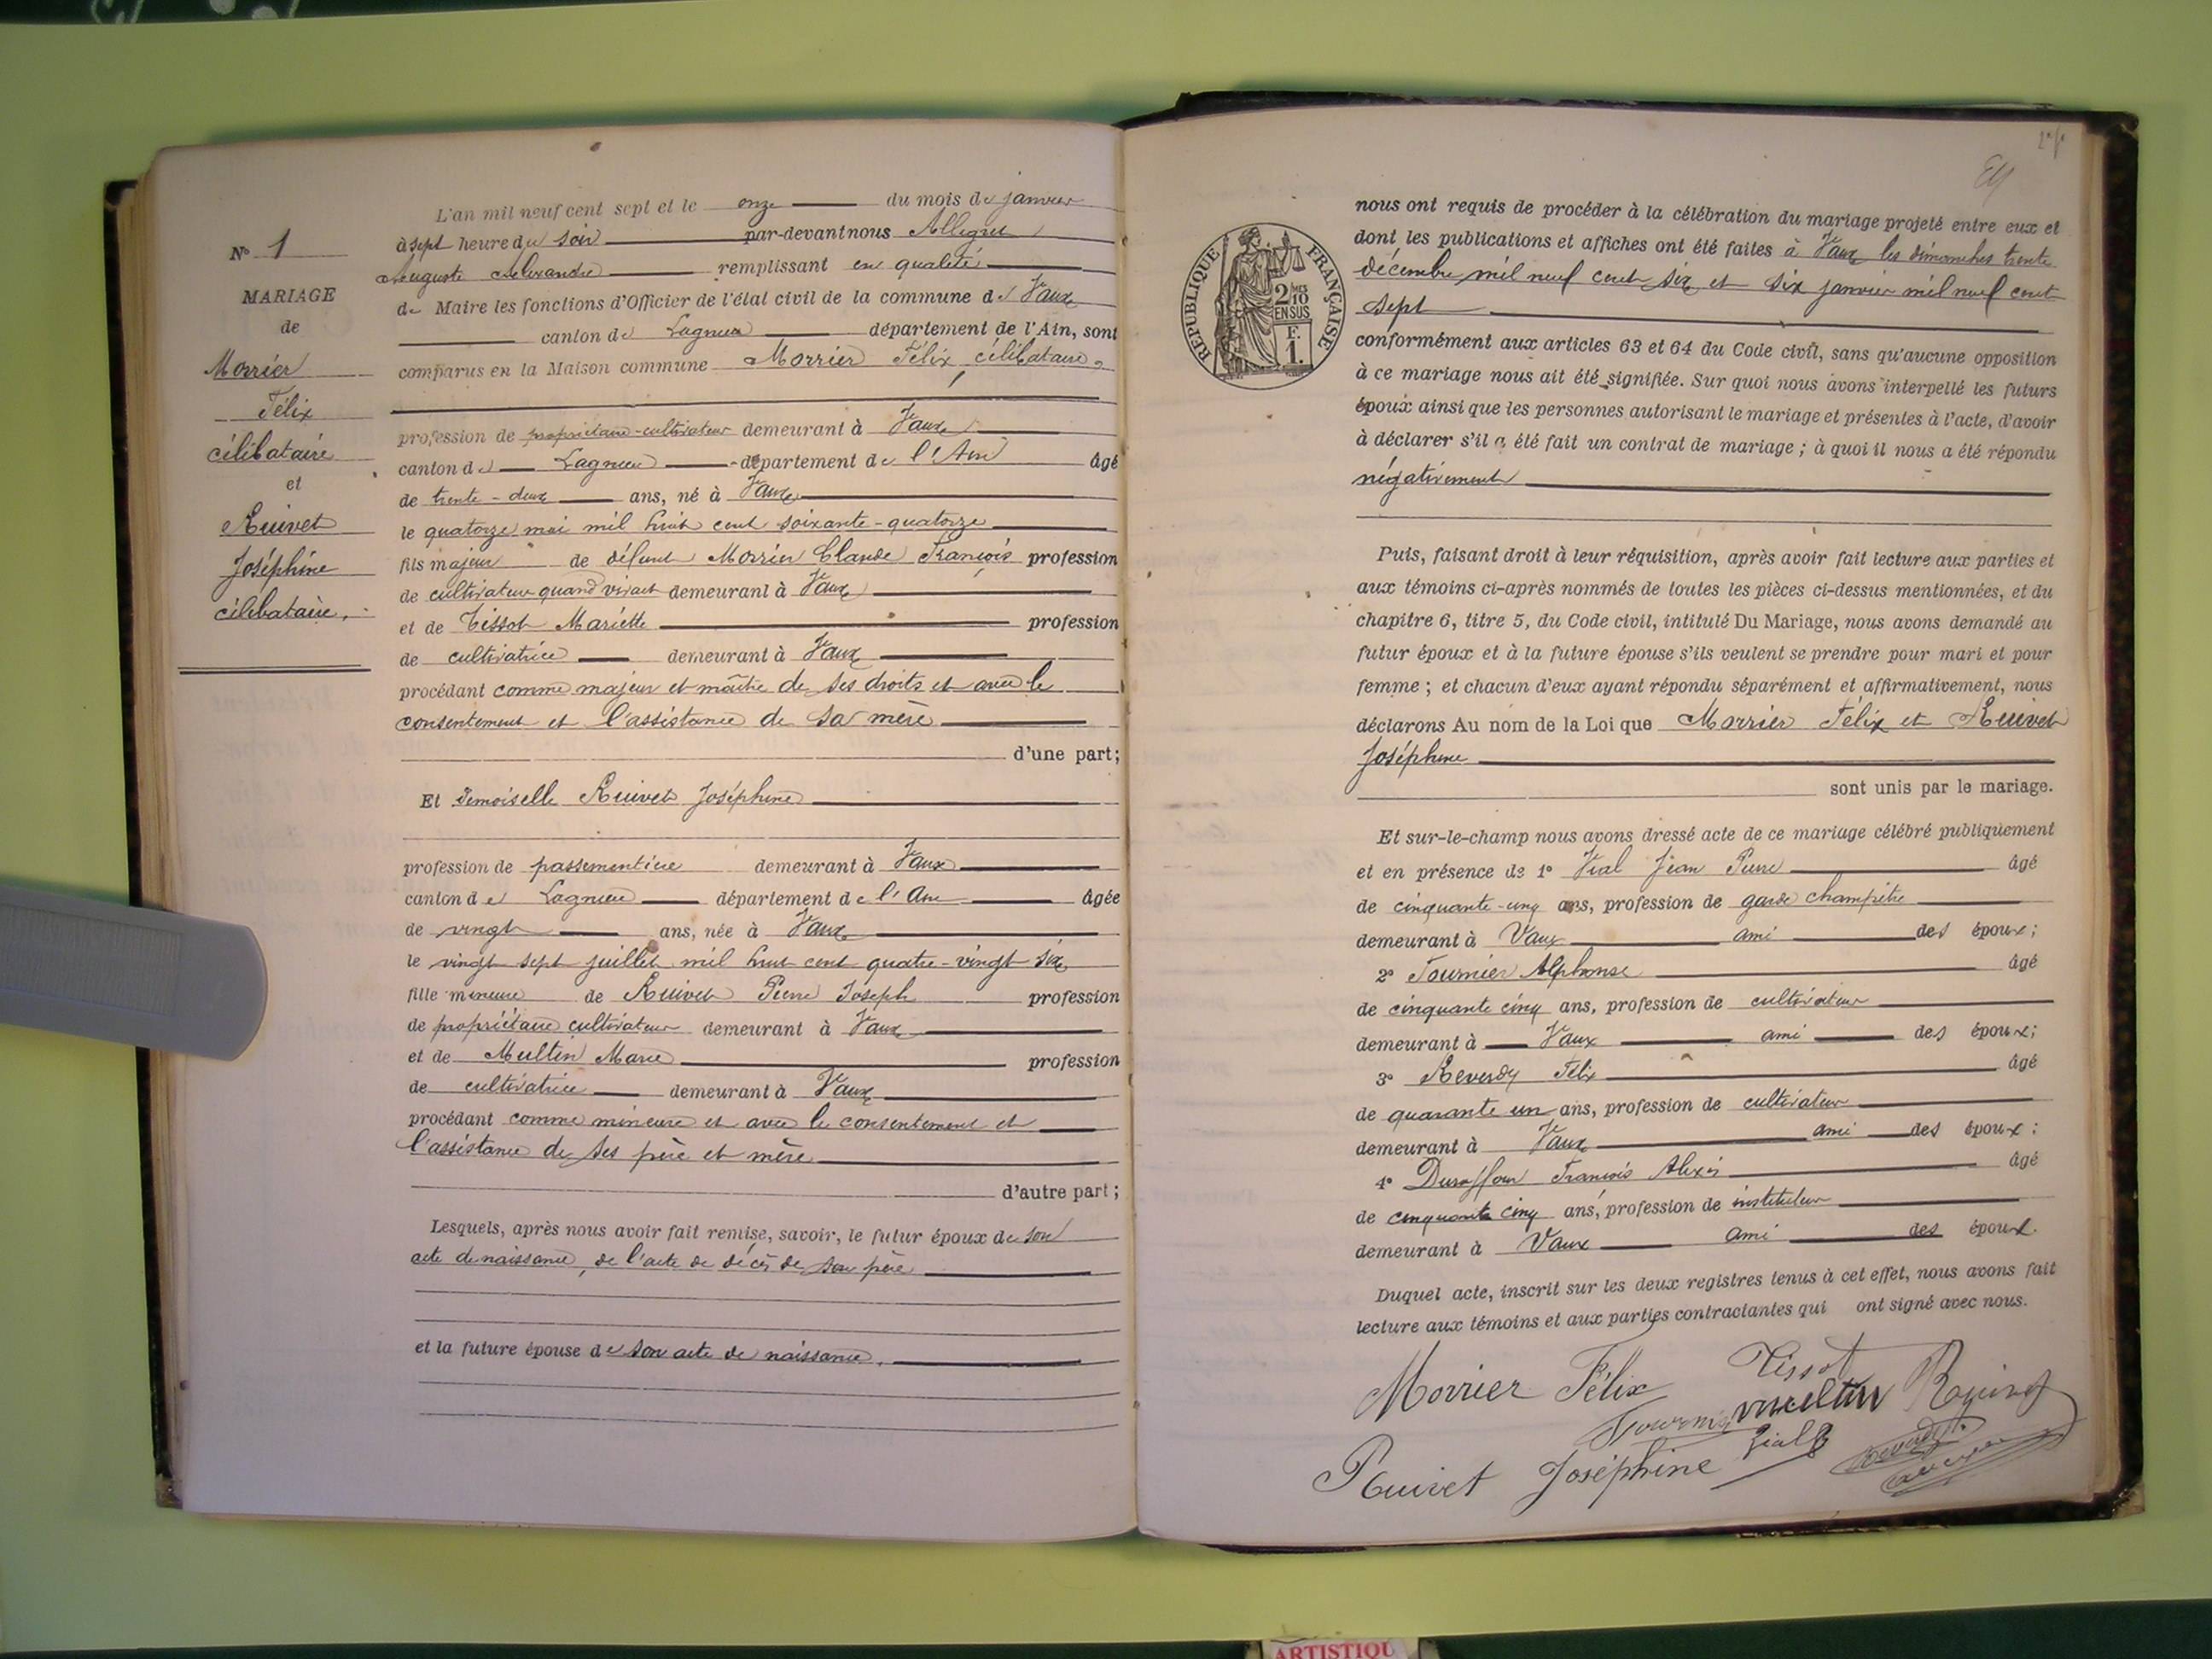 N° 1
MARIAGE
de
Morrier
Félix
célibataire
et
Ruivet
Joséphine
célibataire.
L'an mil neuf cent sept et le onze du mois de janvier
à sept heure du soir par-devant nous Allegret
Auguste Alexandre remplissant en qualité
de Maire les fonctions d'Officier de l'état civil de la commune de Vaux
canton de Lagnieu département de l'Ain, sont
comparus en la Maison commune Morrier Félix, célibataire,
profession de propriétaire-cultivateur demeurant à Vaux
canton de Lagnieu département de l'Ain âgé
de trente-deux ans, né à Vaux
le quatorze mai mil huit cent soixante-quatorze
fils majeur de défunt Morrier Claude François profession
de cultivateur quand vivait demeurant à Vaux
et de Tissot Mariette profession
de cultivatrice demeurant à Vaux
procédant comme majeur et maître de ses droits et avec le
consentement et l'assistance de sa mère
d'une part;
Et Demoiselle Ruivet Joséphine
profession de passementière demeurant à Vaux
canton de Lagnieu département de l'Ain âgée
de vingt ans, née à Vaux
le vingt sept juillet mil huit cent quatre-vingt six
fille mineure de Ruivet Pierre Joseph profession
de propriétaire cultivateur demeurant à Vaux
et de Multin Marie profession
de cultivatrice demeurant à Vaux
procédant comme mineure et avec le consentement et
l'assistance de ses père et mère
d'autre part;
Lesquels, après nous avoir fait remise, savoir, le futur époux de son
acte de naissance, de l'acte de décès de son père
et la future épouse de son acte de naissance.
2e f°
RÉPUBLIQUE FRANÇAISE
2 MES
10
EN SUS
F.
1.
nous ont requis de procéder à la célébration du mariage projeté entre eux et
dont les publications et affiches ont été faites à Vaux les dimanches trente
décembre mil neuf cent six et six janvier mil neuf cent
sept
conformément aux articles 63 et 64 du Code civil, sans qu'aucune opposition
à ce mariage nous ait été signifiée. Sur quoi nous avons interpellé les futurs
époux ainsi que les personnes autorisant le mariage et présentes à l'acte, d'avoir
à déclarer s'il a été fait un contrat de mariage ; à quoi il nous a été répondu
négativement
Puis, faisant droit à leur réquisition, après avoir fait lecture aux parties et
aux témoins ci-après nommés de toutes les pièces ci-dessus mentionnées, et du
chapitre 6, titre 5, du Code civil, intitulé Du Mariage, nous avons demandé au
futur époux et à la future épouse s'ils veulent se prendre pour mari et pour
femme ; et chacun d'eux ayant répondu séparément et affirmativement, nous
déclarons Au nom de la Loi que Morrier Félix et Ruivet
Joséphine
sont unis par le mariage.
Et sur-le-champ nous avons dressé acte de ce mariage célébré publiquement
et en présence de 1° Vial Jean Pierre âgé
de cinquante-cinq ans, profession de garde champêtre
demeurant à Vaux ami des époux;
2° Tournier Alphonse âgé
de cinquante cinq ans, profession de cultivateur
demeurant à Vaux ami des époux;
3° Reverdy Félix âgé
de quarante un ans, profession de cultivateur
demeurant à Vaux ami des époux;
4° Duraffour François Alexis âgé
de cinquante cinq ans, profession de instituteur
demeurant à Vaux ami des époux.
Duquel acte, inscrit sur les deux registres tenus à cet effet, nous avons fait
lecture aux témoins et aux parties contractantes qui ont signé avec nous.
Morrier Félix Tissot
Tournier Multin Ruivet
Ruivet Joséphine Vial
ARTISTIQU